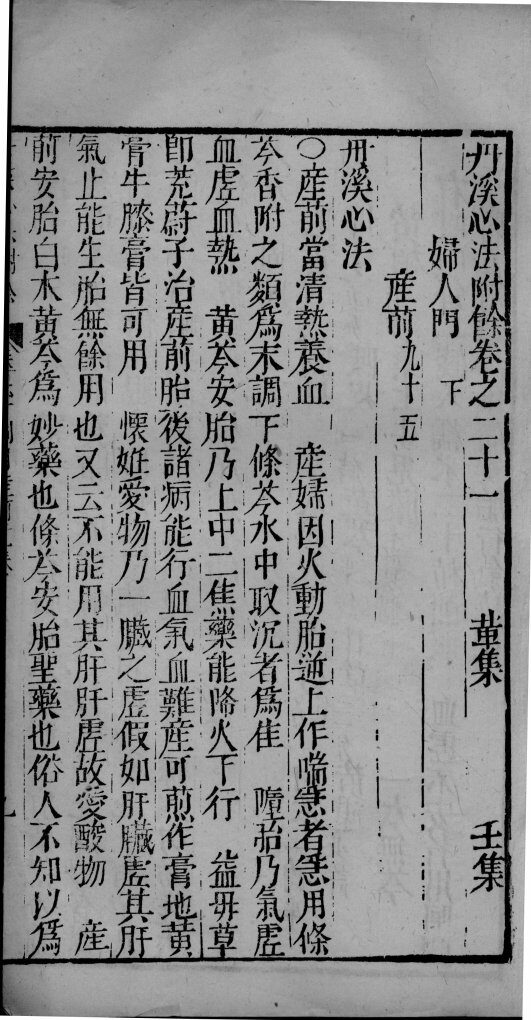 丹溪心法附餘卷之二十一　董集　壬集
婦人門　下
產前九十五
丹溪心法
○產前當清熱養血　產婦因火動胎逆上作喘急者急用條
芩香附之類爲末調下條芩水中取沉者爲佳　墮胎乃氣虛
血虛血熱　黃芩安胎乃上中二焦藥能降火下行　益母草
卽茺蔚子治產前胎後諸病能行血氣血難產可煎作膏地黃
膏牛膝膏皆可用　懷姙愛物乃一臟之虛假如肝臟虛其肝
氣止能生胎無餘用也又云不能用其肝肝虛故愛酸物　產
前安胎白朮黃芩爲妙藥也條芩安胎聖藥也俗人不知以爲